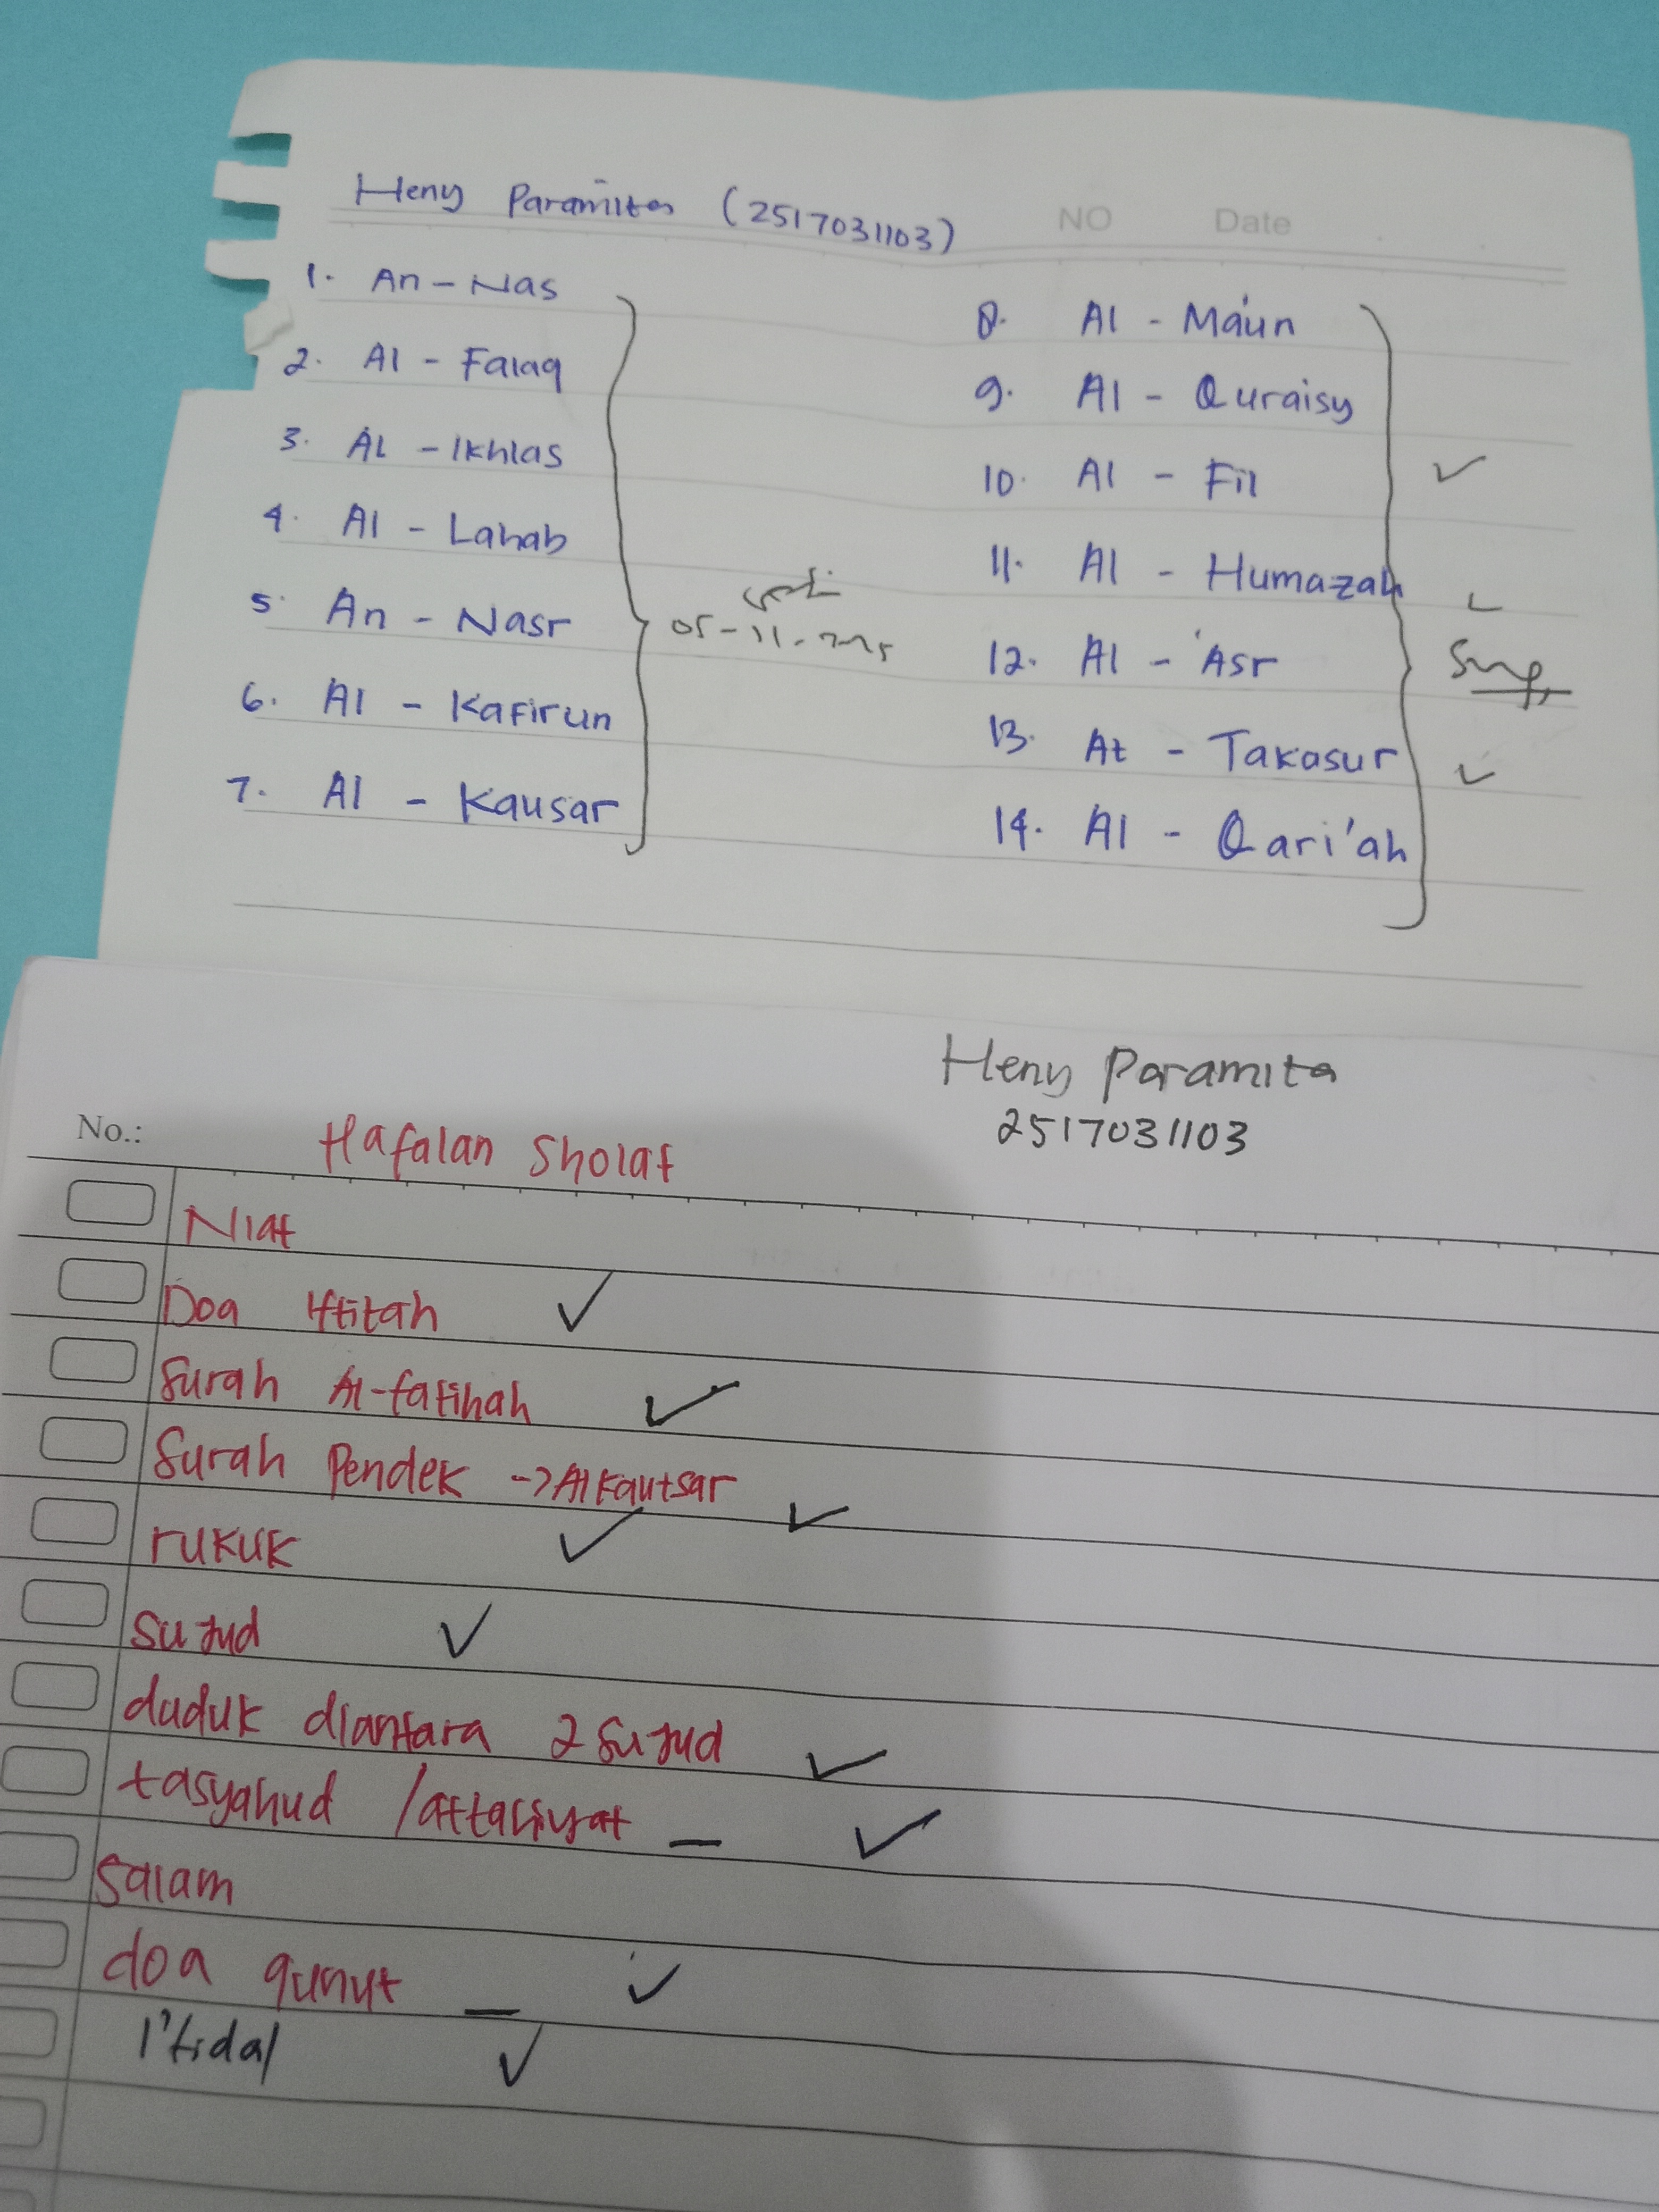 Heny Paramita (2517031103)
NO Date
1. An - Nas
2. Al - Falaq
3. AL - Ikhlas
4. Al - Lahab
5. An - Nasr
6. Al - Kafirun
7. Al - Kausar
05-11-2025
8. Al - Ma'un
9. Al - Quraisy
10. Al - Fil
11. Al - Humazah
12. Al - 'Asr
13. At - Takasur
14. Al - Qari'ah
Heny Paramita
2517031103
No.: Hafalan Sholat
Niat
Doa Iftitah ✓
Surah Al-fatihah ✓
Surah Pendek -> Al kautsar ✓
rukuk ✓
sujud ✓
duduk diantara 2 sujud ✓
tasyahud / attahiyat _ ✓
Salam
doa qunut _ ✓
I'tidal ✓